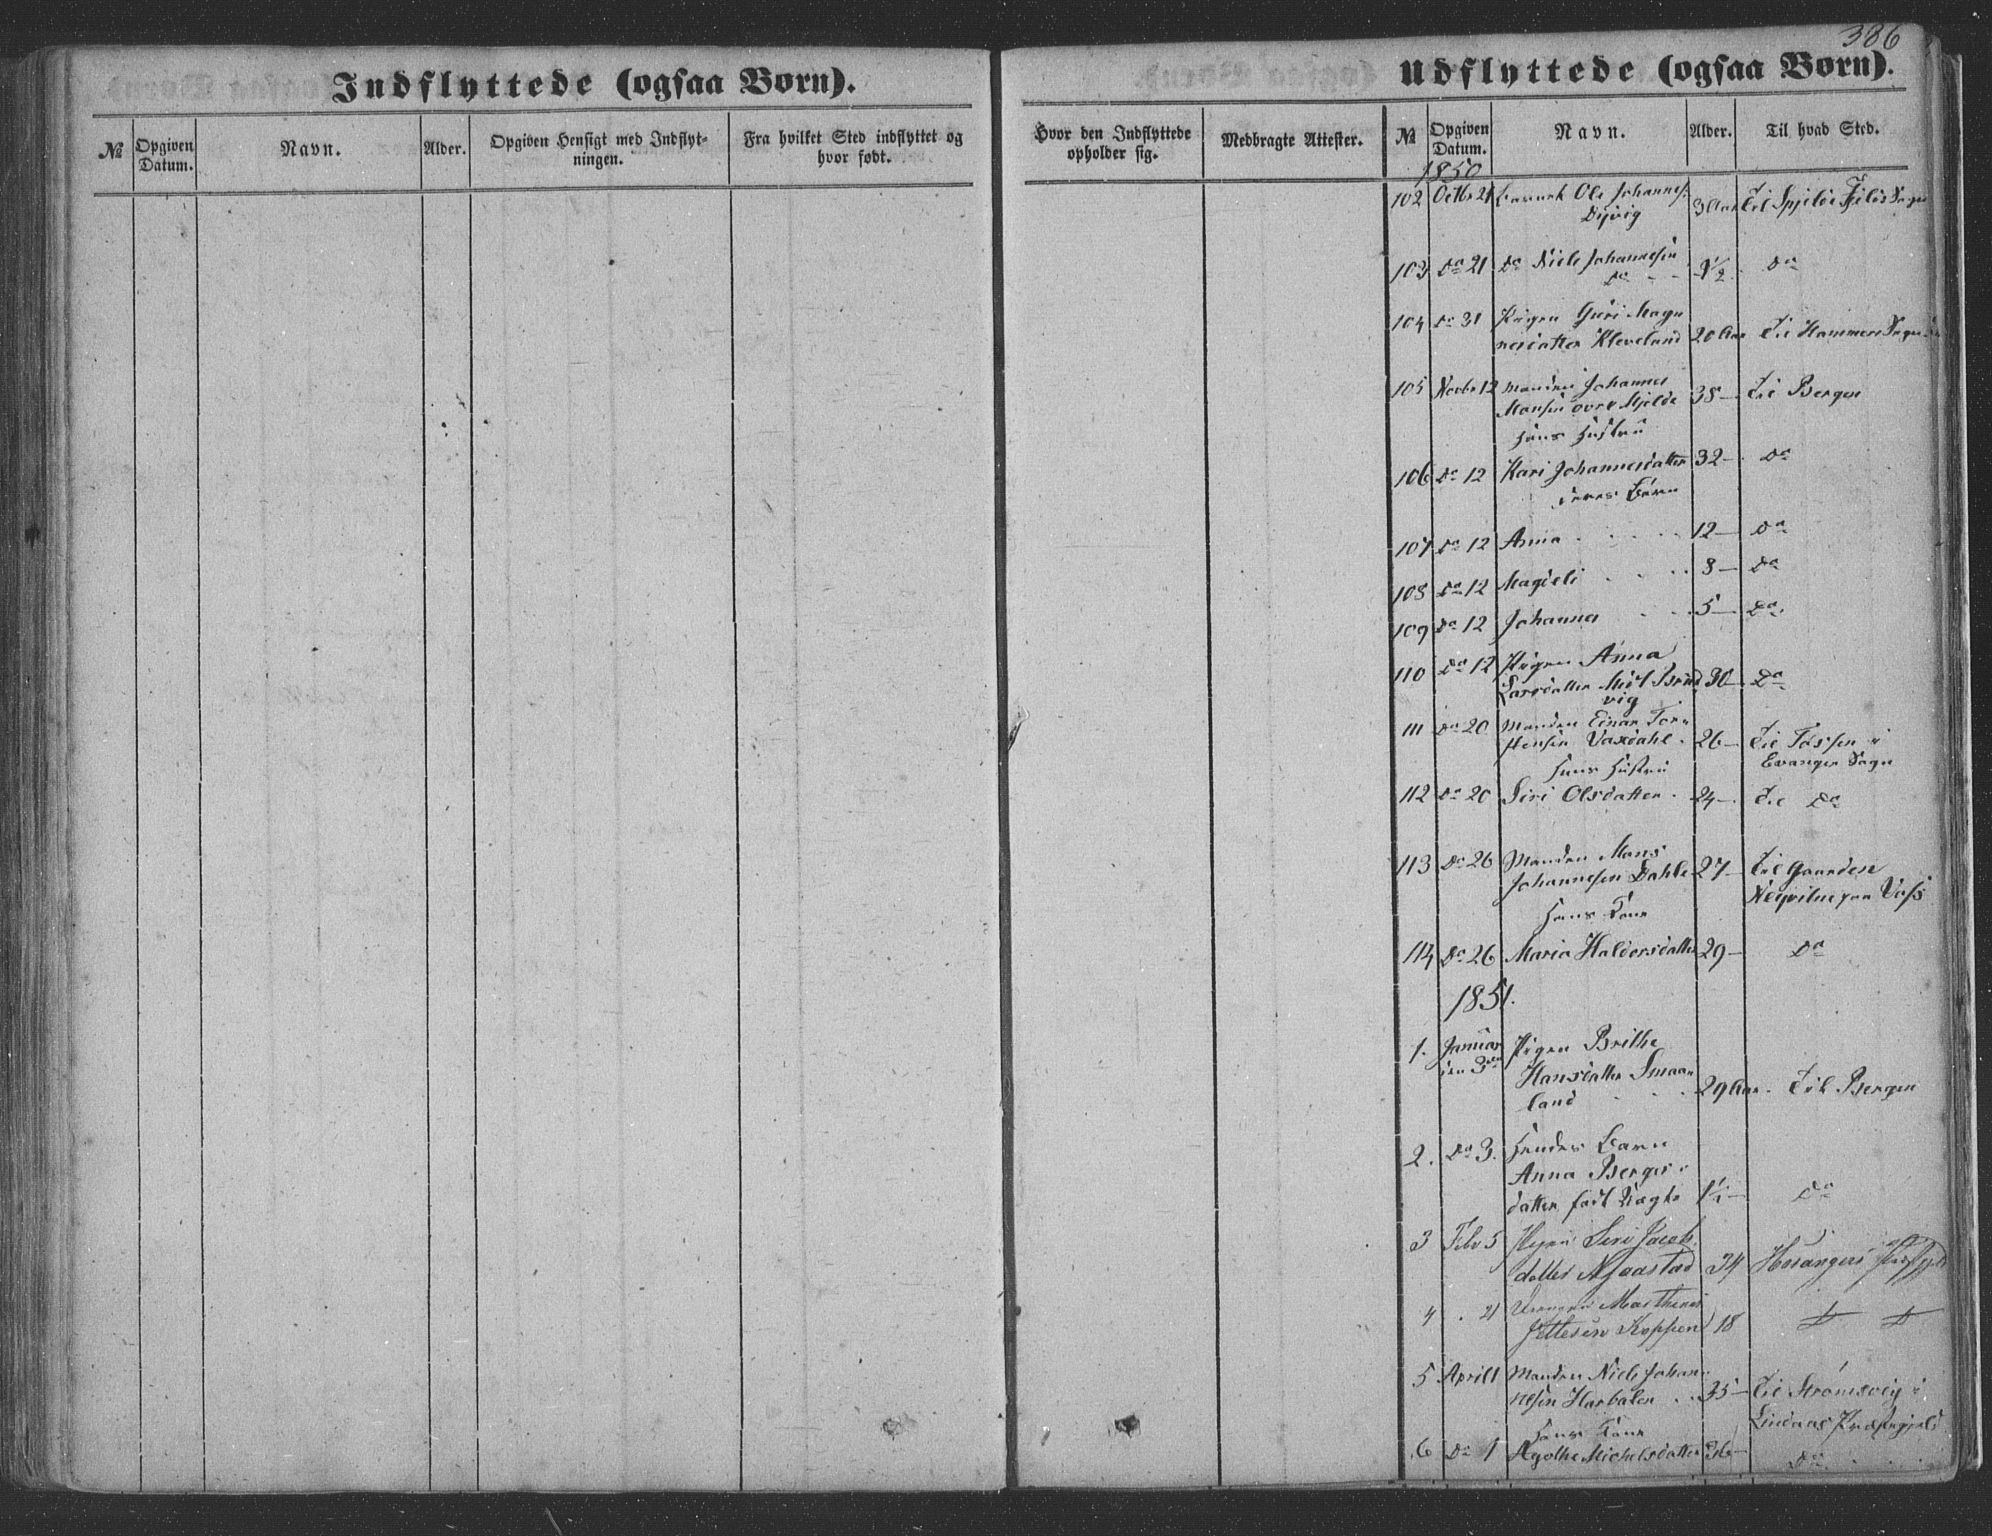 386
Indflyttede (ogsaa Børn).
Udflyttede (ogsaa Børn).
№ Opgiven Datum. Navn. Alder. Opgiven Hensigt med Indflyt-ningen. Fra hvilket Sted indflyttet og hvor født.
Hvor den Indflyttede opholder sig. Medbragte Attester. № Opgiven Datum. Navn. Alder. Til hvad Sted.
1850
102 Octbr 21 Barnet Ole Johannes. 3 Aar Til Fjelds Sogn
Dyvig
103 Do 21 Do Niels Johannesen 1/2 Do
Do
104 Do 31 Pigen Guri Magn
nesdatter Kleveland 20 Aar Til Hammers Sogn
105 Novbr 12 Manden Johannes
Monsen øvre Mjelde 38 – Til Bergen
Hans Hustru
106 Do 12 Kari Johannesdatter 32 – Do
deres Børn
107 Do 12 Anna 12 – Do
108 Do 12 Magdeli 8 – Do
109 Do 12 Johannes 5 – Do
110 Do 12 Pigen Anna
Larsdatter 30 – Do
vig
111 Do 20 Manden Einar Tor-
stensen Vaxdahl 26 – Til Fossen i
Evanger Sogn
Hans Hustru
112 Do 20 Siri Olsdatter 24 – Til Do
113 Do 26 Manden Mons
Johannesen Dahle 27 – Til Gaarden
paa Voss
Hans Kone
114 Do 26 Maria Haldorsdatter 29 – Do
1851.
1. Januar
den 3die Pigen Brithe
Hansdatter Smaa-
land 29 Aar. Til Bergen
2. Do 3. Hendes Barn
Anna Berges-
datter født uægte 1 1/2 – Do
3 Febr 5 Pigen Siri Jacob.
datter Njaastad 34 Hosangers Præstgjeld
4 . 21 Mathias
Koppen 18 D D
5 April 1 Manden Niels Johan-
nesen Harbalen 35 – Til Strømsvig i
Lindaas Præstegjeld
Hans Kone
6 Do 1 Agothe Michelsdatter 36 – Do